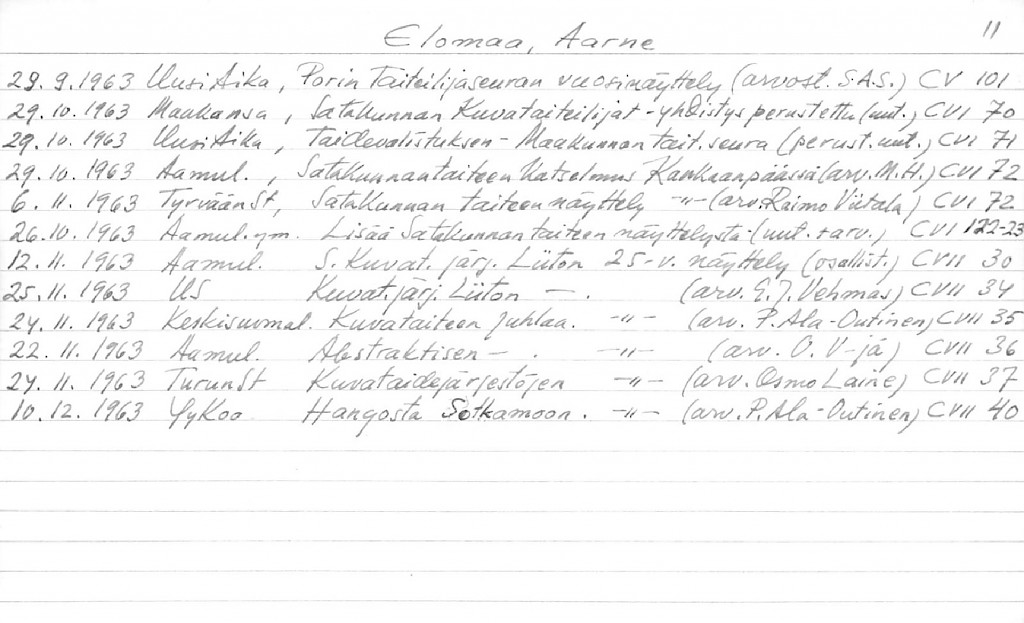 Elomaa, Aarne 11
29.9.1963 Uusi Aika, Porin Taiteilijaseuran vuosinäyttely (arvost. S.A.S.) CV 101
29.10.1963 Maakansa, Satakunnan Kuvataiteilijat-yhdistys perustettu (uut.) CVI 70
29.10.1963 Uusi Aika, Taidevalistuksen - Maakunnan tait.seura (perust.uut.) CVI 71
29.10.1963 Aamul., Satakunnan taiteen katselmus Kankaanpäässä (arv. M.H.) CVI 72
6.11.1963 TyrväänSt, Satakunnan taiteen näyttely -"- (arv. Raimo Viitala) CVI 72
26.10.1963 Aamul. ym. Lisää Satakunnan taiteen näyttelystä (uut. + arv.) CVI 122-23
12.11.1963 Aamul. S. Kuvat. järj. Liiton 25-v. näyttely (osallist.) CVII 30
25.11.1963 US Kuvat.järj. Liiton — . (arv. E.J. Vehmas) CVII 34
24.11.1963 Keskisuomal. Kuvataiteen juhlaa. -"- (arv. P. Ala-Outinen) CVII 35
22.11.1963 Aamul. Abstraktisen — . -"- (arv. O. V-jä) CVII 36
24.11.1963 TurunSt Kuvataidejärjestöjen -"- (arv. Osmo Laine) CVII 37
10.12.1963 YyKoo Hangosta Sotkamoon. -"- (arv. P. Ala-Outinen) CVII 40